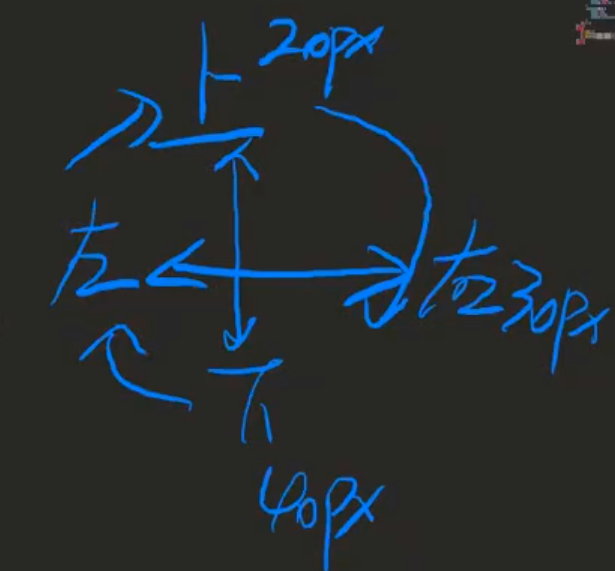 上 20px
左
右 30px
下
40px